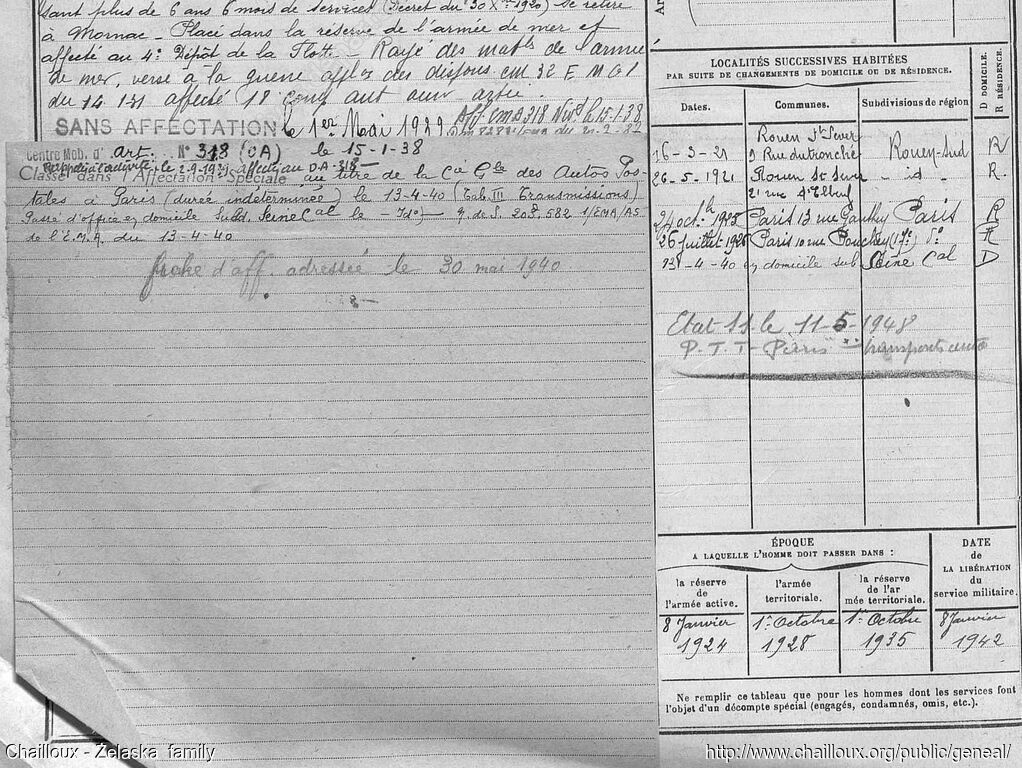 ant plus de 6 ans 6 mois de services (Décret du 30 Xbre 1920) se retire
à Mornac - Placé dans la réserve de l'armée de mer et
affecté au 4e Dépôt de la Flotte - Rayé des mat^ls de l'armée
de mer, versé à la guerre
du 14 1 31 affecté 18
SANS AFFECTATION le 1er Mai 1929
le 15-1-38
Centre Mob. d' art. N° 318 (DA) le 15-1-38
Rappelé à l'activité le 2-9-1939 affecté au D.A. 318 -
Classé dans l'Affectation Spéciale au titre de la Cie Gle des Autos Pos-
tales à Paris (durée indéterminée) le 13-4-40 (Tab. III Transmissions)
Passé d'office domicile Subd. Seine Cal le - 20 582 1/EMA/AS
de l'E.M.A. du 13-4-40
fiche d'aff. adressée le 30 mai 1940
LOCALITÉS SUCCESSIVES HABITÉES
PAR SUITE DE CHANGEMENTS DE DOMICILE OU DE RÉSIDENCE.
D DOMICILE.
R RÉSIDENCE.
Dates. Communes. Subdivisions de région
16-3-21 Rouen St Sever 9 Rue dutronché Rouen-Sud R
26-5-1921 Rouen St Sever 21 rue d'Elbeuf - id - R.
24 octbre 1925 Paris 13 rue Gauthey Paris R
26 juillet 1926 Paris 10 rue Pouchet (17e) do R
13-4-40 domicile sub Seine Cal D
Etat S.S. le 11-5-1948
P.T.T - Paris - transports auto
ÉPOQUE
A LAQUELLE L'HOMME DOIT PASSER DANS :
DATE
de
LA LIBÉRATION
du
service militaire.
la réserve
de
l'armée active.
l'armée
territoriale.
la réserve
de l'ar
mée territoriale.
8 Janvier 1er Octobre 1er Octobre 8 Janvier
1924 1928 1935 1942
Ne remplir ce tableau que pour les hommes dont les services font
l'objet d'un décompte spécial (engagés, condamnés, omis, etc.).
Chailloux - Zelaska family
http://www.chailloux.org/public/geneal/